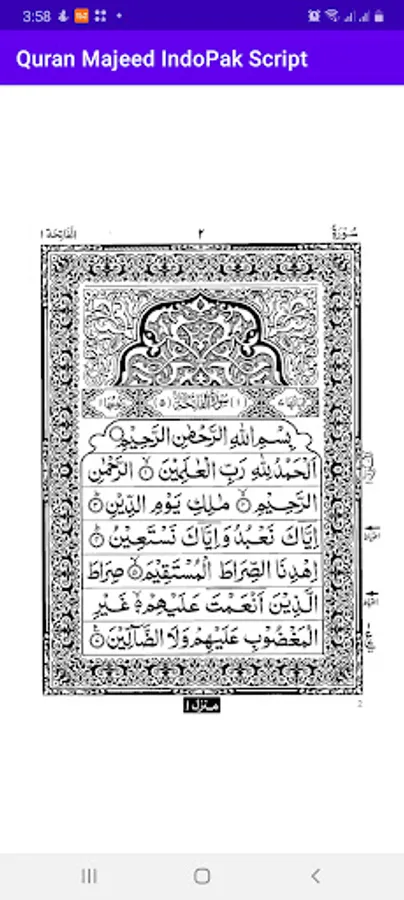 3:58
Quran Majeed IndoPak Script
الفاتحة ١
٢
سورة
(١) سورة الفاتحة (٥)
بِسْمِ اللهِ الرَّحْمٰنِ الرَّحِيْمِ
اَلْحَمْدُ لِلّٰهِ رَبِّ الْعٰلَمِيْنَ ۙ‏ ۝١ الرَّحْمٰنِ
الرَّحِيْمِ ۙ‏ ۝٢ مٰلِكِ يَوْمِ الدِّيْنِ ؕ‏ ۝٣
اِيَّاكَ نَعْبُدُ وَاِيَّاكَ نَسْتَعِيْنُ ؕ‏ ۝٤
اِهْدِنَا الصِّرَاطَ الْمُسْتَقِيْمَ ۙ‏ ۝٥ صِرَاطَ
الَّذِيْنَ اَنْعَمْتَ عَلَيْهِمْ ۙ۬ ۝٦ غَيْرِ
الْمَغْضُوْبِ عَلَيْهِمْ وَلَا الضَّآلِّيْنَ ۝٧
منزل ١
2